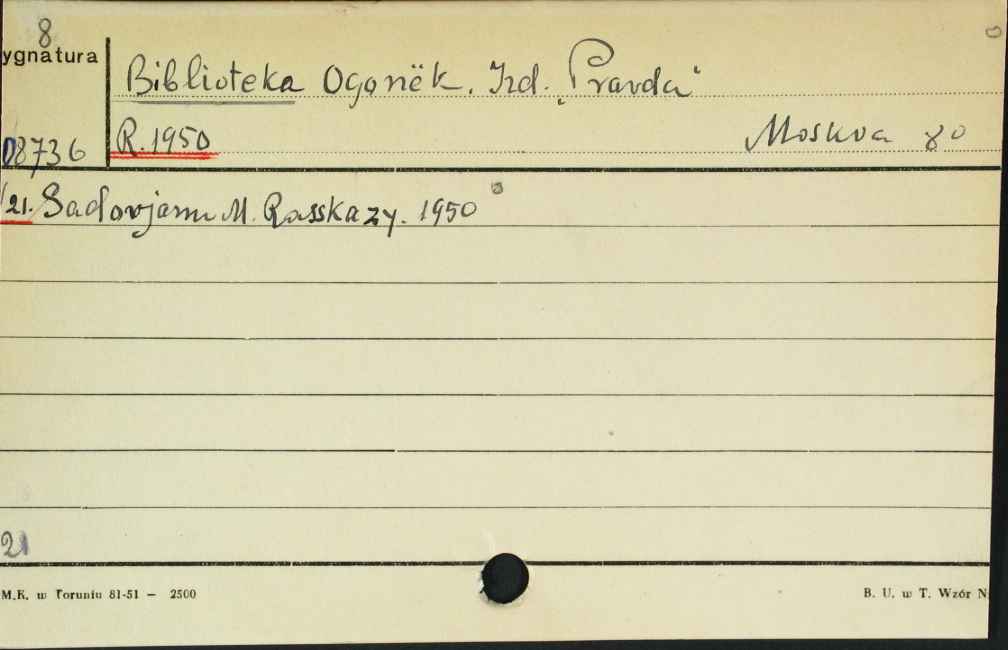 8
ygnatura
Biblioteka Ogonëk. Izd. „Pravda"
08736
R.1950
Moskva 8°
21. Sadovjanu M. Rasskazy. 1950
21
M.K. w Toruniu 81-51 — 2500
B. U. w T. Wzór N